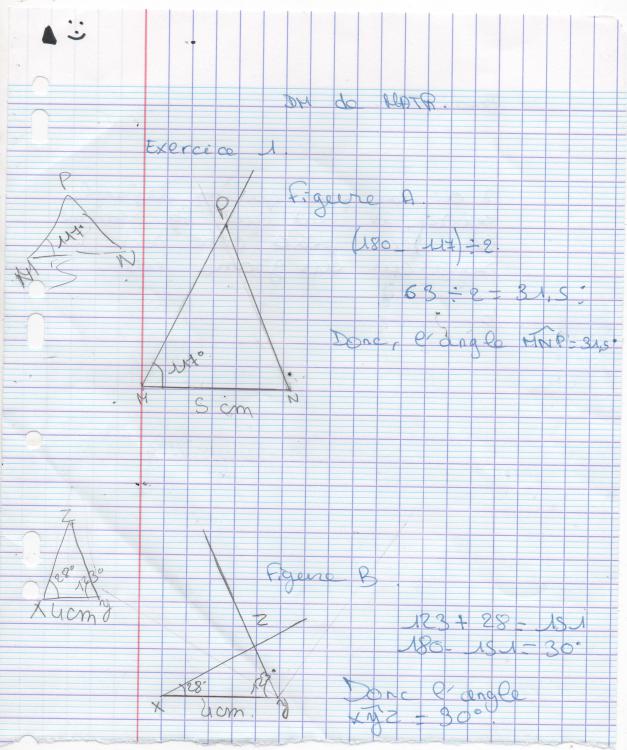 DM de MATH.
Exercice 1.
Figure A.
P
117°
M
N
5
P
117°
M
N
5 cm
(180 - 117) ÷ 2.
63 ÷ 2 = 31,5°
Donc, l'angle MNP = 31,5°
Figure B.
Z
28°
123°
X
4cm
y
Z
28°
123°
X
4cm.
y
123 + 28 = 151
180 - 151 = 30°
Donc l'angle
xyz = 30°.